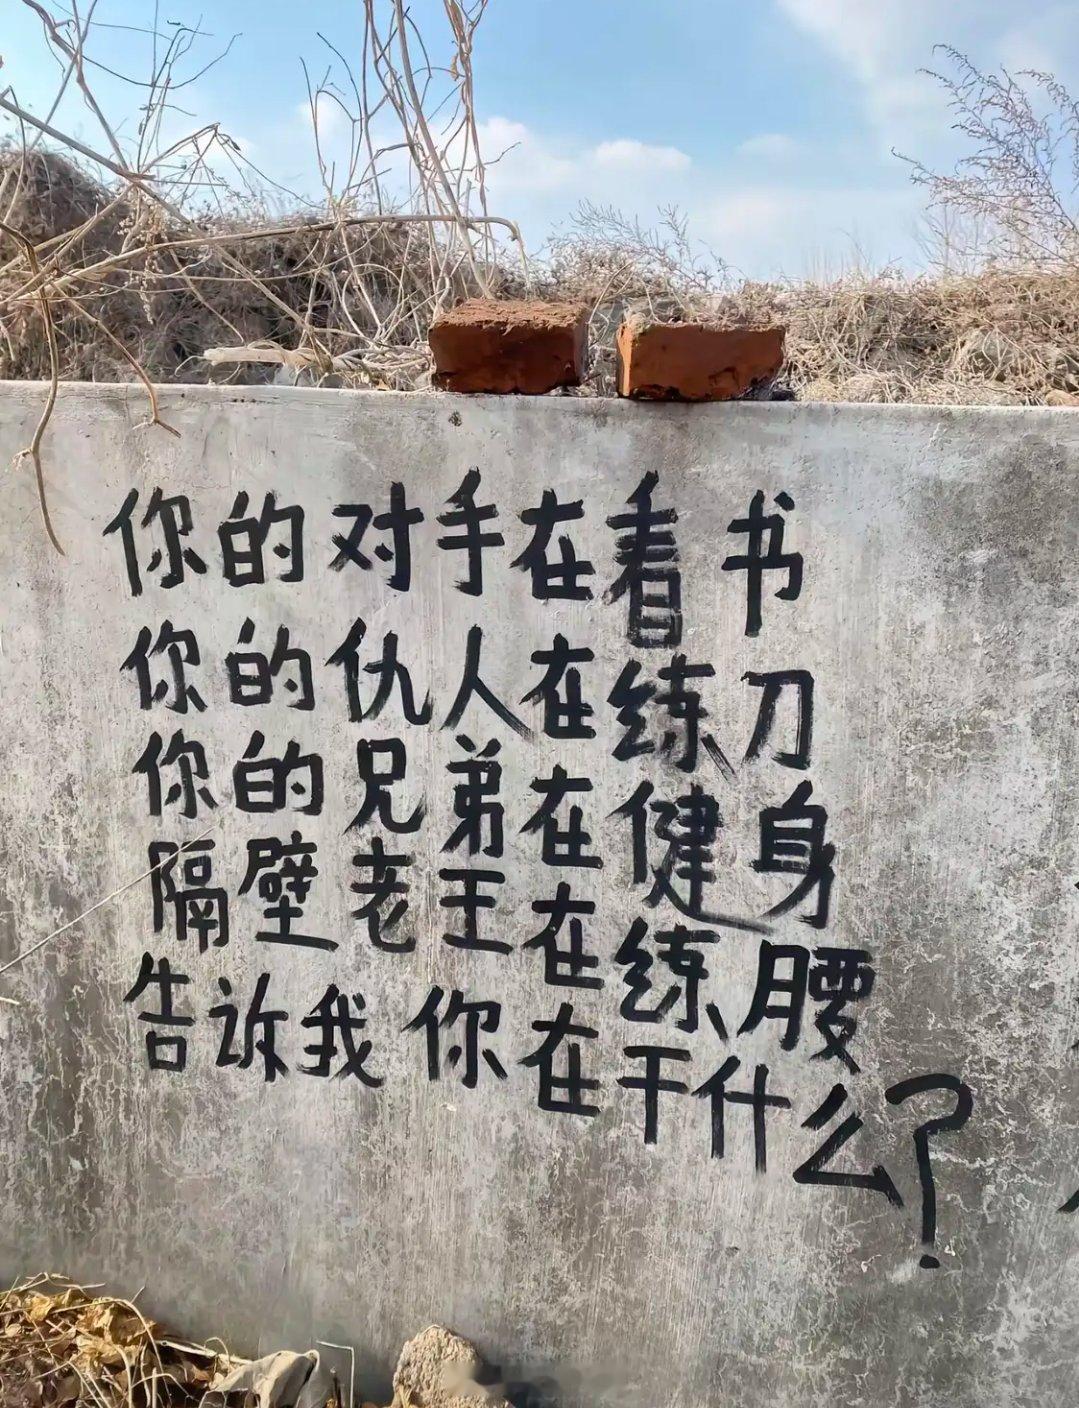 你的对手在看书
你的仇人在练刀
你的兄弟在健身
隔壁老王在练腰
告诉我你在干什么?